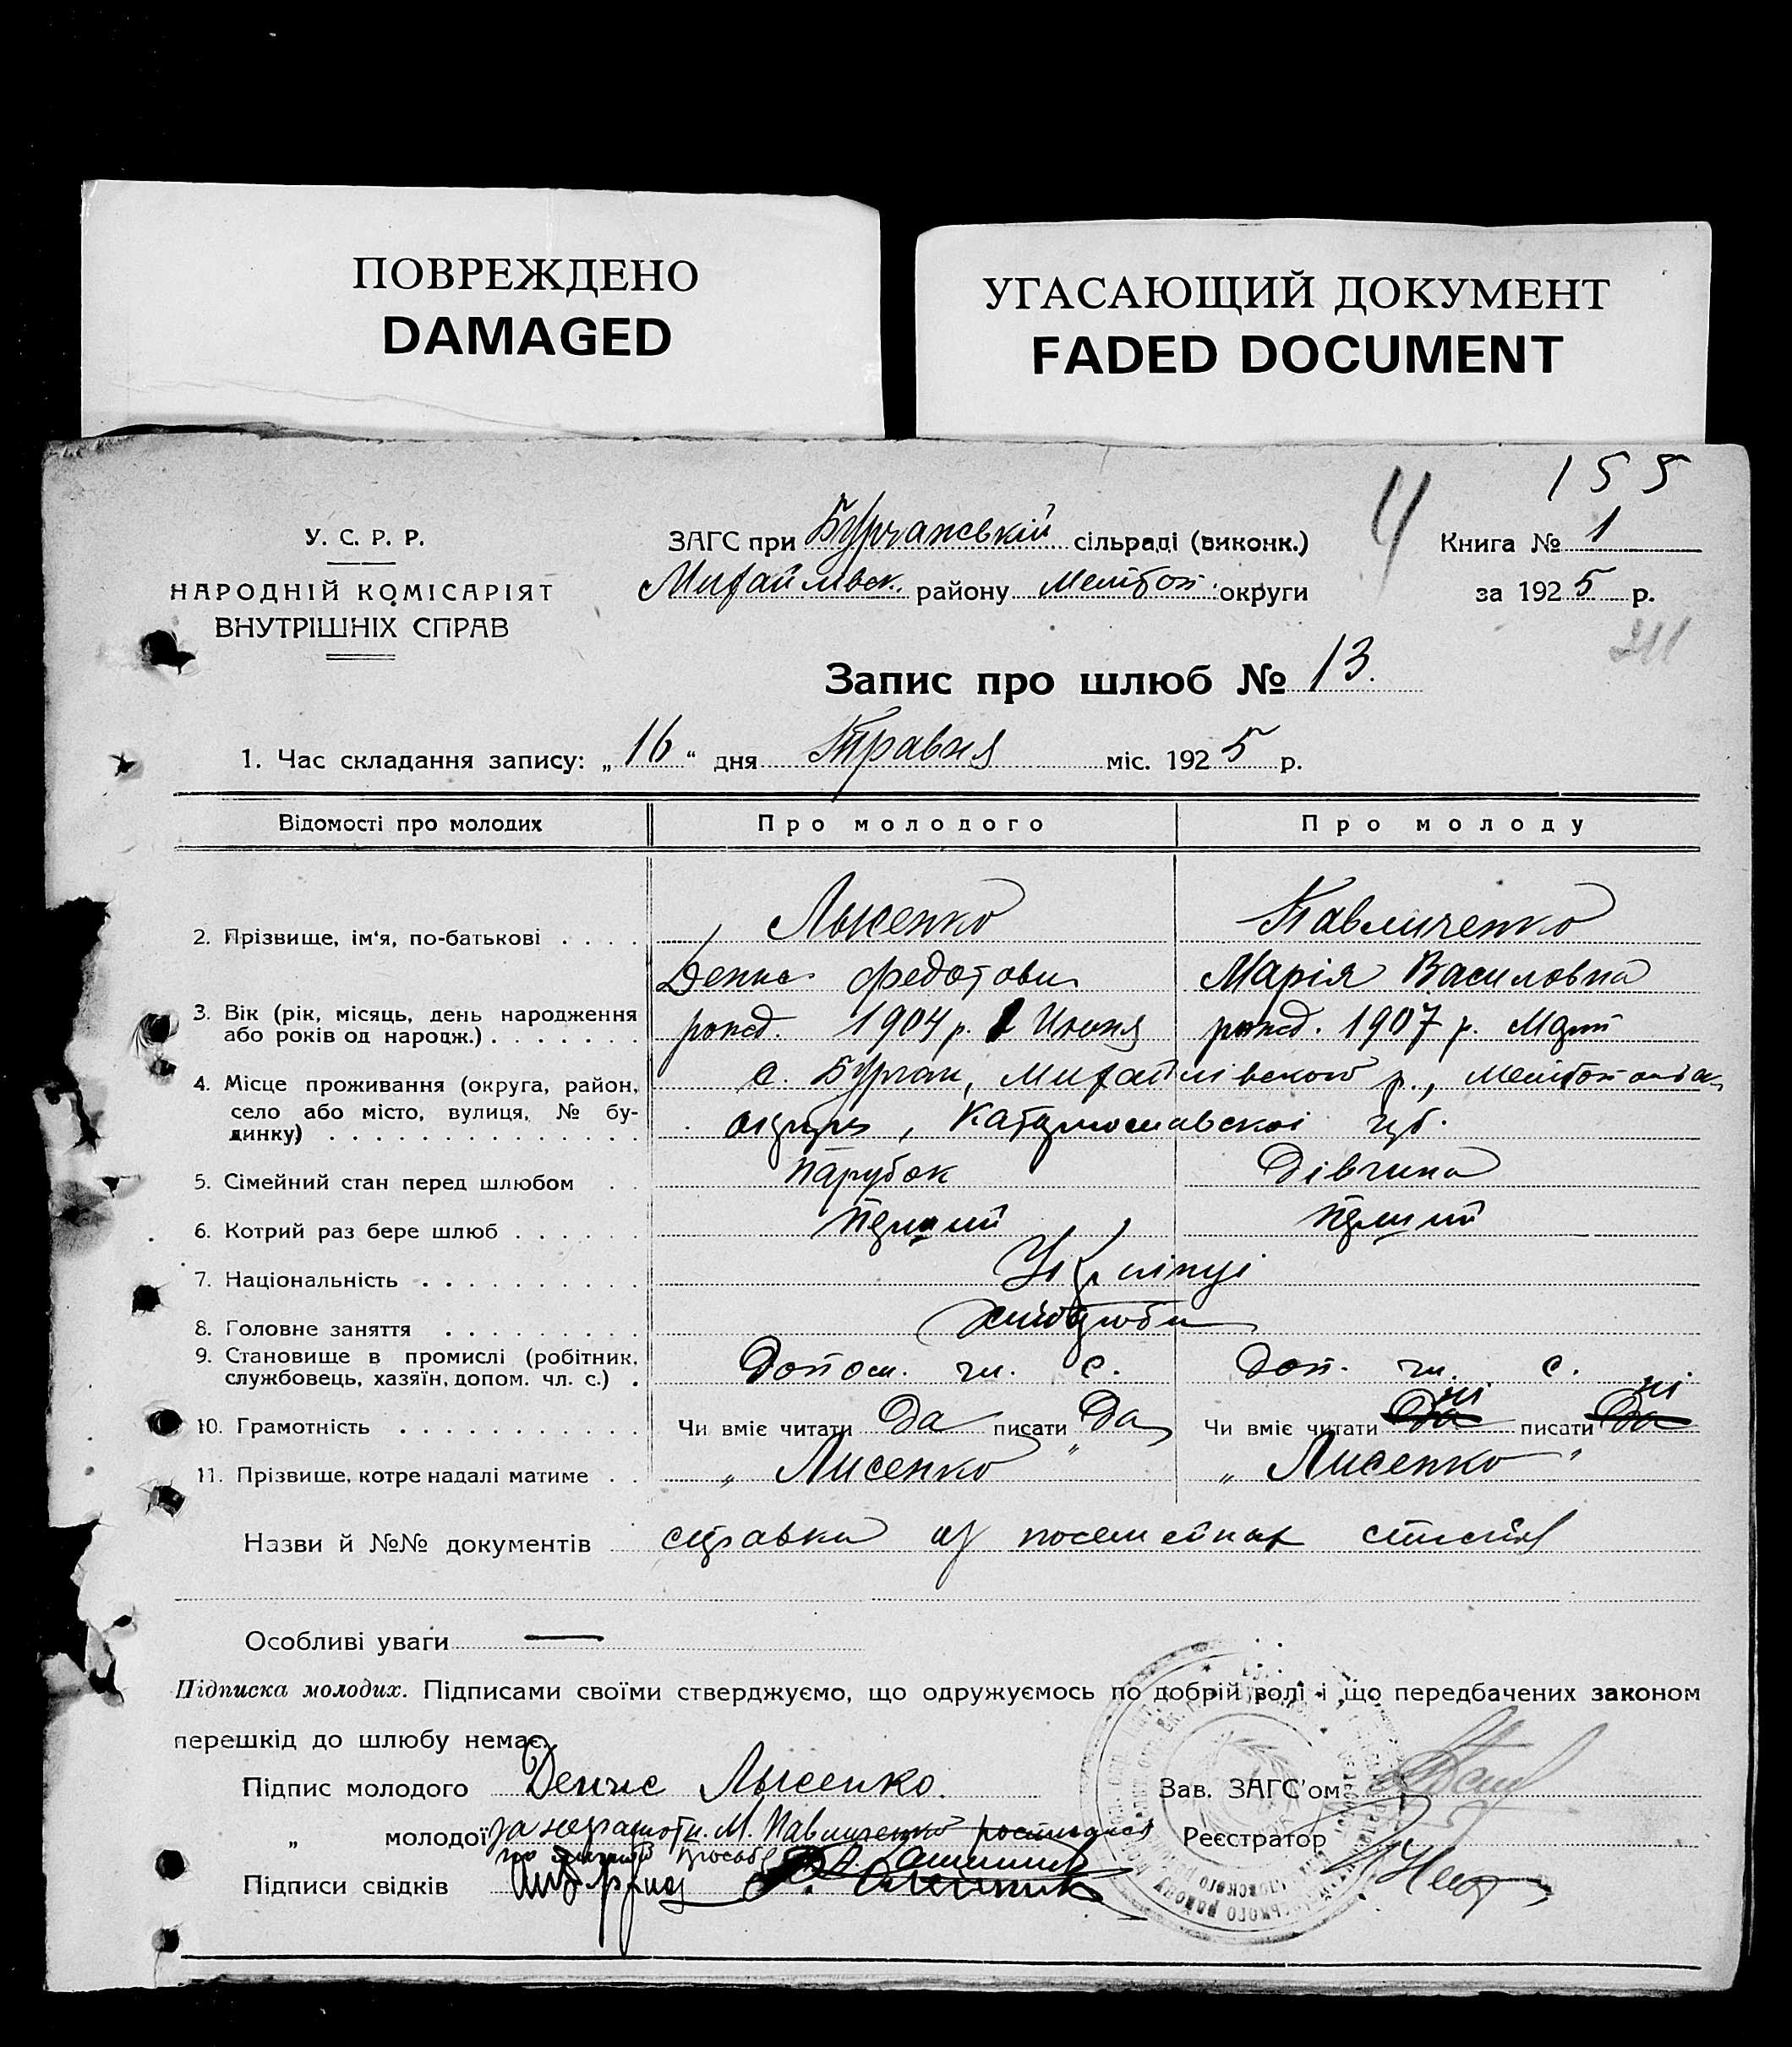 ПОВРЕЖДЕНО
DAMAGED
УГАСАЮЩИЙ ДОКУМЕНТ
FADED DOCUMENT
155
4
У. С. Р. Р.
НАРОДНІЙ КОМІСАРІЯТ
ВНУТРІШНІХ СПРАВ
ЗАГС при Бурчанській сільраді (виконк.)
Михайлівск. району Меліт. округи
Книга № 1
за 1925 р.
211
Запис про шлюб № 13.
1. Час складання запису: „16“ дня Травня міс. 1925 р.
Відомості про молодих
Про молодого
Про молоду
2. Прізвище, ім'я, по-батькові . . . .
Лысенко
Денис Федотович
Павличенко
Марія Василовна
3. Вік (рік, місяць, день народження або років од народж.) . . . . . . .
рожд. 1904 р. Июня
рожд. 1907 р. Март
4. Місце проживання (округа, район, село або місто, вулиця, № будинку) . . . . . . . . . . . . . .
с. Бурчак, Михайлівского р.,
округи, Катеринославскоі губ.
5. Сімейний стан перед шлюбом . .
Парубок
Дівчина
6. Котрий раз бере шлюб . . . . . .
Перший
Перший
7. Національність . . . . . . . . . .
Українці
8. Головне заняття . . . . . . . . .
Хлібороби
9. Становище в промислі (робітник, службовець, хазяїн, допом. чл. с.) .
Допом. чл. с.
Доп. чл. с.
10. Грамотність . . . . . . . . . . .
Чи вміє читати Да писати Да
Чи вміє читати Да ні писати Да ні
11. Прізвище, котре надалі матиме . .
„ Лисенко "
„ Лисенко "
Назви й №№ документів справки из посемейных списків
Особливі уваги —
Підписка молодих. Підписами своїми стверджуємо, що одружуємось по добрій волі і що передбачених законом
перешкід до шлюбу немає.
Підпис молодого Денис Лысенко.
Зав. ЗАГС'ом
„ молодої за неграмотн. М. Павличенко
Реєстратор
Підписи свідків Олейник